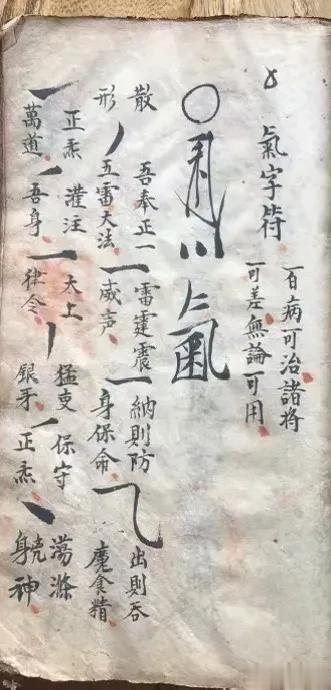 氣字符
百病可治諸將
可差無論可用
氣
散
形
吾奉正一
五雷大法
雷霆震
威声
納則防
身保命
出則吞
魔食精
正炁
萬道
灌注
吾身
大上
律令
猛吏
銀牙
保守
正炁
蕩滌
神